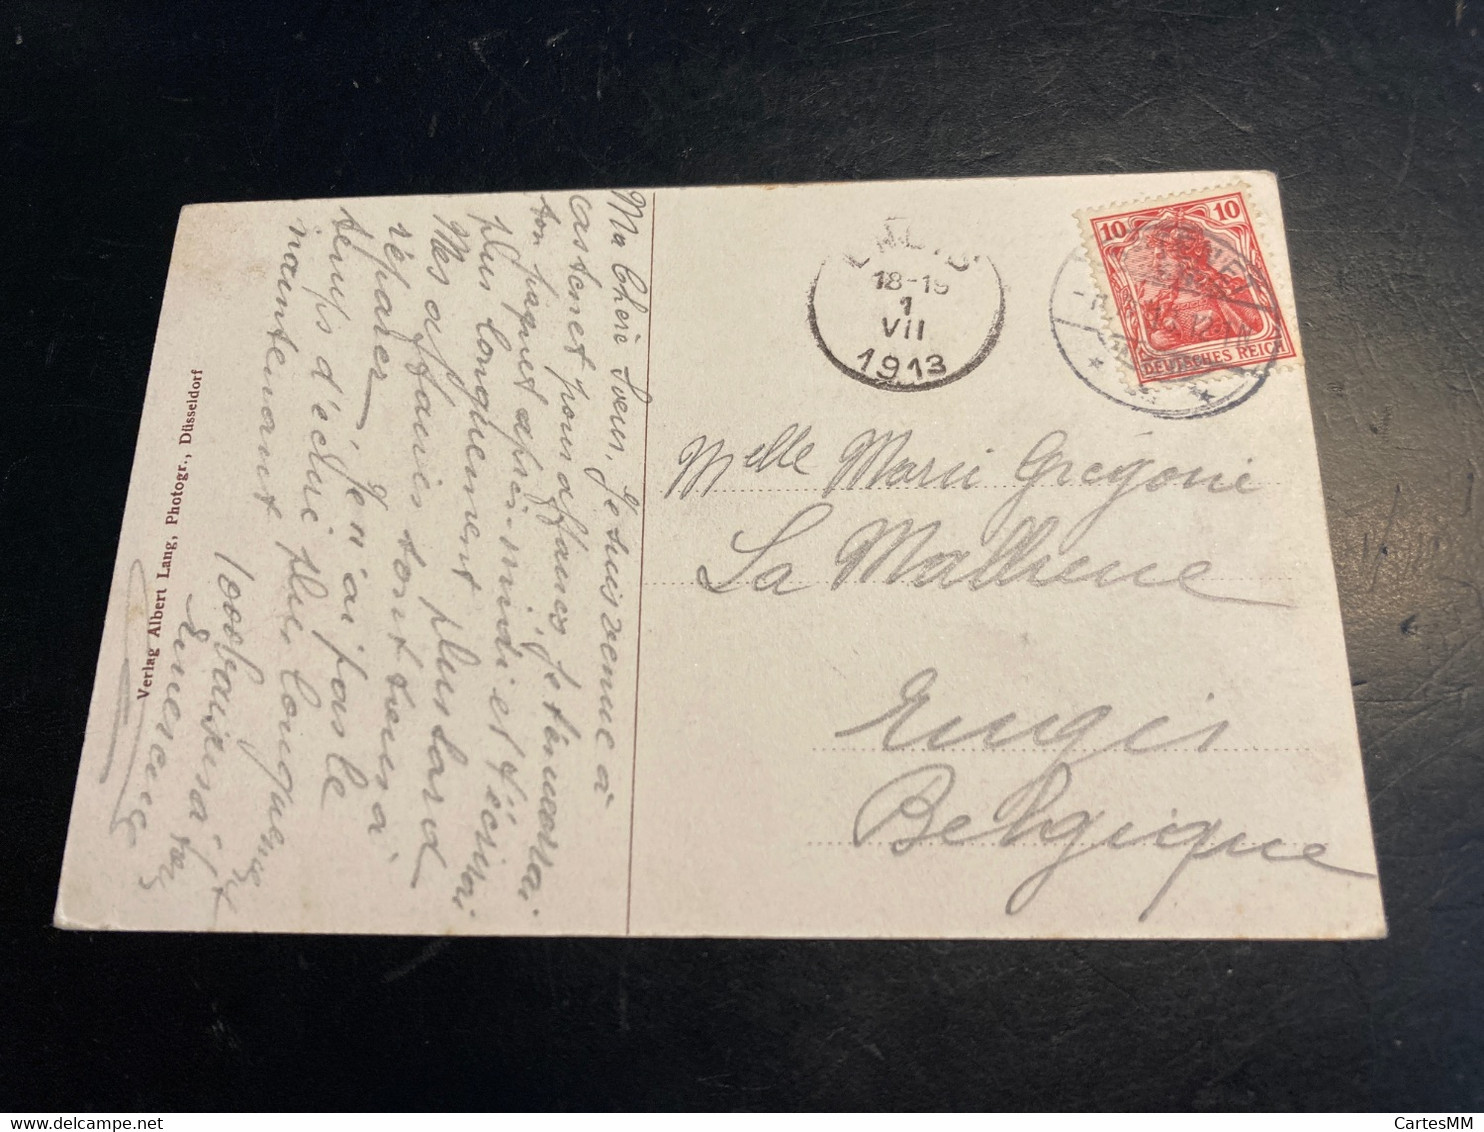 Ma Chère Soeur, Je suis venue à
Castenet pour affaires, Je t'enverrai
ton paquet après-midi et t'écrirai
plus longuement plus tard
Mes affaires sont tous à
réparer
Je n'ai pas le
temps d'écrire plus longuement
maintenant
1000 baisers à tous
Verlag Albert Lang, Photogr., Düsseldorf
10
10
DEUTSCHES REICH
18-19
1
VII
1913
Melle Marie Grégoire
La Mallieue
Engis
Belgique
CartesMM